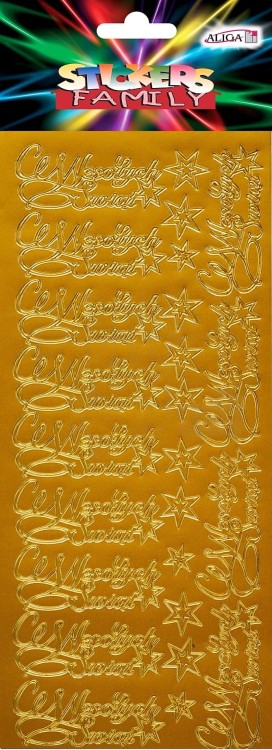 ALIGA
STICKERS
FAMILY
Wesołych
Świąt
Wesołych
Świąt
Wesołych
Świąt
Wesołych
Świąt
Wesołych
Świąt
Wesołych
Świąt
Wesołych
Świąt
Wesołych
Świąt
Wesołych
Świąt
Wesołych
Świąt
Wesołych
Świąt
Wesołych
Świąt
Wesołych
Świąt